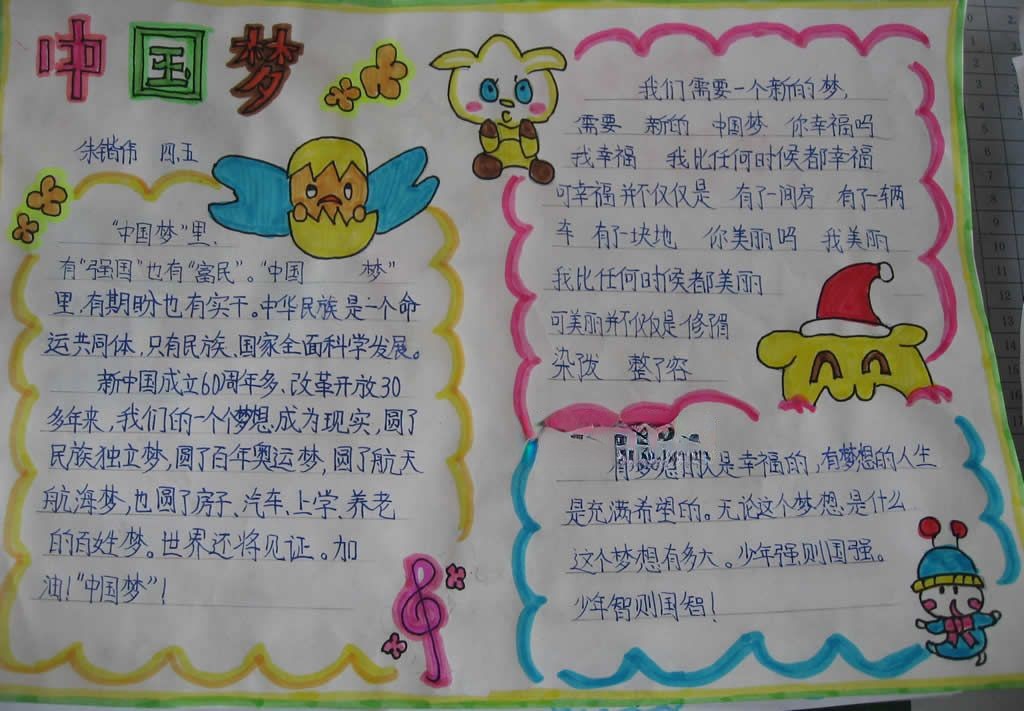 中国梦
朱锴伟 四.五
“中国梦”里.
有“强国”也有“富民”。“中国 梦”
里,有期盼也有实干。中华民族是一个命
运共同体,只有民族、国家全面科学发展。
新中国成立60周年多、改革开放30
多年来,我们的一个个梦想成为现实,圆了
民族独立梦,圆了百年奥运梦,圆了航天
航海梦,也圆了房子、汽车、上学、养老
的百姓梦。世界还将见证。加
油!“中国梦”!
我们需要一个新的梦,
需要 新的 中国梦 你幸福吗
我幸福 我比任何时候都幸福
可幸福并不仅仅是 有了一间房 有了一辆
车 有了一块地 你美丽吗 我美丽
我比任何时候都美丽
可美丽并不仅仅是修眉
染发 整了容
有梦想的人是幸福的,有梦想的人生
是充满希望的。无论这个梦想是什么
这个梦想有多大。少年强则国强。
少年智则国智!